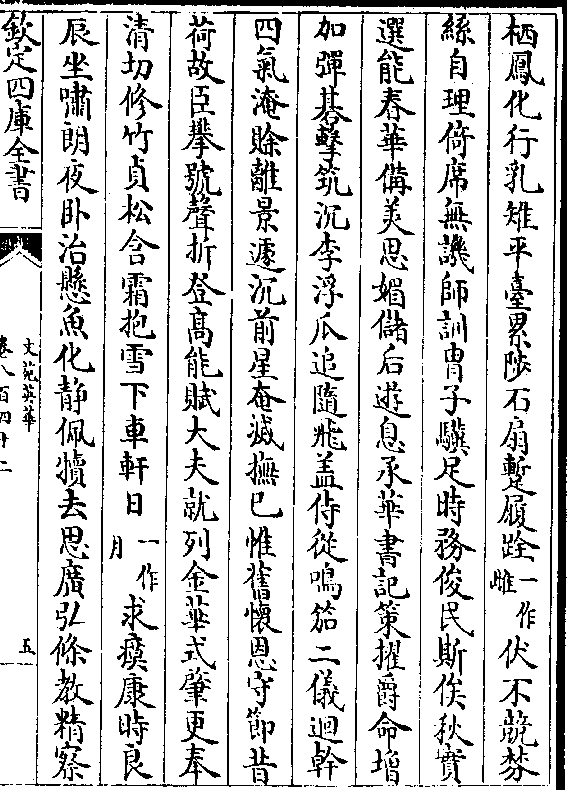 栖鳳化行乳雉平臺累陟石扇蹔履跧一作雌伏不競棼
絲自理倚席無譏師訓胄子驥足時務俊民斯俟秋實
選能春華備美思媚儲后遊息承華書記策擢爵命增
加彈棊擊筑沉李浮瓜追隨飛盖侍從鳴笳二儀迴斡
四氣淹賒離景遽沉前星奄滅撫已惟舊懷恩守節昔
荷故臣攀號聲折登高能賦大夫就列金華式肇更奉
清切修竹貞松含霜抱雪下車軒日一作月求瘼康時良
辰坐嘯朗夜卧治懸魚化静佩犢去思廣弘條教精察
欽定四庫全書
文苑英華
卷八百四十二
五